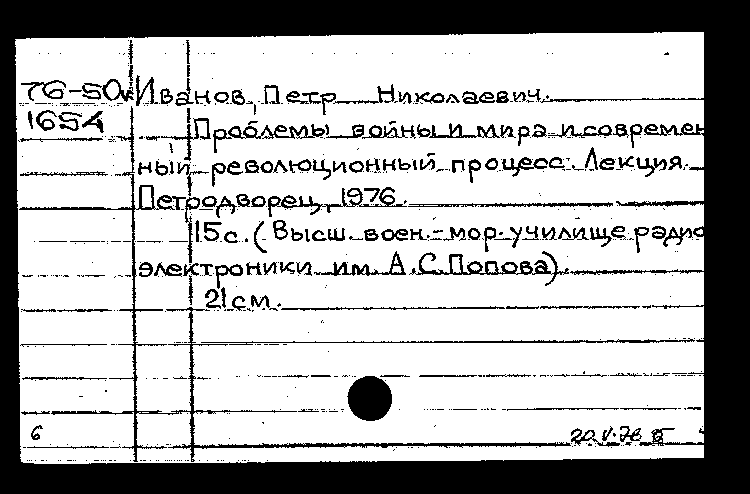 76-50к Иванов, Петр Николаевич.
1654 Проблемы войны и мира и современ
ный революционный процесс. Лекция.
Петродворец, 1976.
15с. (Высш. воен.-мор. училище радио
электроники им. А.С.Попова).
21см.
6 20.V.76